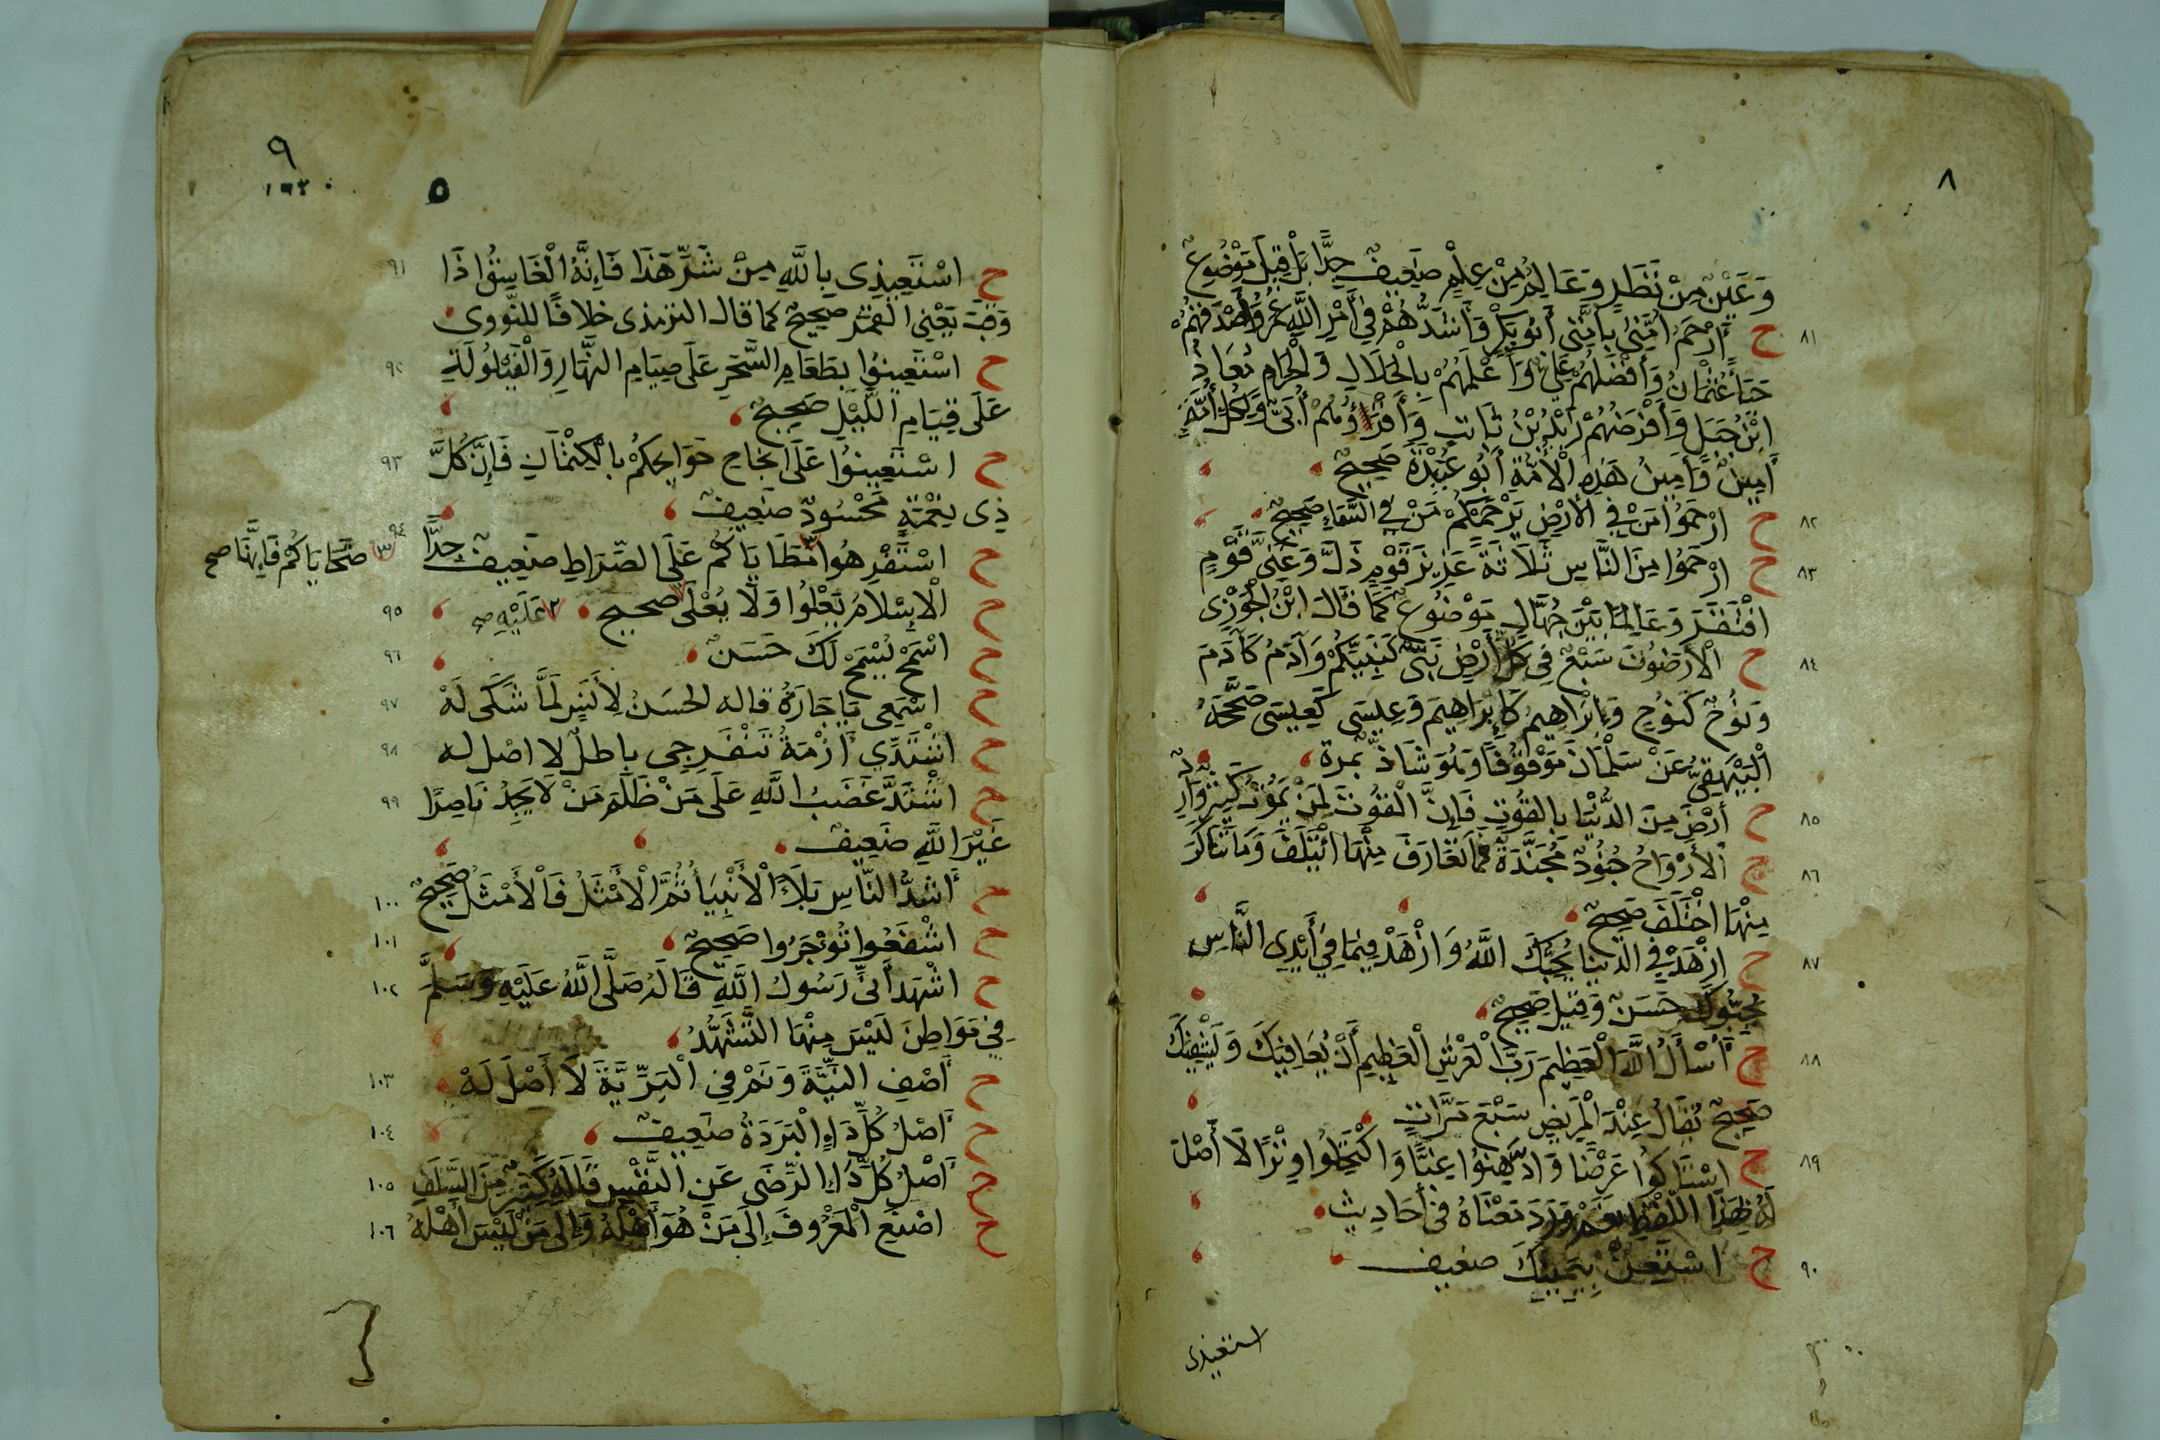 ٨
وَعَيْنٌ مِنْ نَظَرٍ وَعَالِمٌ مِنْ عِلْمٍ ضَعِيفٌ جِدًّا بَلْ قِيلَ مَوْضُوعٌ
٨١ ح أَرْحَمُ أُمَّتِي بِأُمَّتِي أَبُو بَكْرٍ وَأَشَدُّهُمْ فِي أَمْرِ اللَّهِ عُمَرُ وَأَصْدَقُهُمْ
حَيَاءً عُثْمَانُ وَأَفْضَلُهُمْ عَلِيٌّ وَأَعْلَمُهُمْ بِالْحَلَالِ وَالْحَرَامِ مُعَاذُ
ابْنُ جَبَلٍ وَأَفْرَضُهُمْ زَيْدُ بْنُ ثَابِتٍ وَأَقْرَاؤُهُمْ أُبَيٌّ وَلِكُلِّ أُمَّةٍ
أَمِينٌ وَأَمِينُ هَذِهِ الْأُمَّةِ أَبُو عُبَيْدَةَ صَحِيحٌ
٨٢ ح ارْحَمُوا مَنْ فِي الْأَرْضِ يَرْحَمْكُمْ مَنْ فِي السَّمَاءِ صَحِيحٌ
٨٣ ح ارْحَمُوا مِنَ النَّاسِ ثَلَاثَةً عَزِيزَ قَوْمٍ ذَلَّ وَغَنِيَّ قَوْمٍ
افْتَقَرَ وَعَالِمًا بَيْنَ جُهَّالٍ مَوْضُوعٌ كَمَا قَالَ ابْنُ الْجَوْزِي
٨٤ ح الْأَرَضُونَ سَبْعٌ فِي كُلِّ أَرْضٍ نَبِيٌّ كَنَبِيِّكُمْ وَآدَمُ كَآدَمَ
وَنُوحٌ كَنُوحٍ وَإِبْرَاهِيمُ كَإِبْرَاهِيمَ وَعِيسَى كَعِيسَى صَحَّحَهُ
الْبَيْهَقِيُّ عَنْ سَلْمَانَ مَوْقُوفًا وَهُوَ شَاذٌّ بمرة
٨٥ ح أَرْضَ مِنَ الدُّنْيَا بِالْقُوتِ فَإِنَّ الْقُوتَ لِمَنْ يَمُوتُ كَثِيرٌ وَارِدٌ
٨٦ ح الْأَرْوَاحُ جُنُودٌ مُجَنَّدَةٌ فَمَا تَعَارَفَ مِنْهَا ائْتَلَفَ وَمَا تَنَاكَرَ
مِنْهَا اخْتَلَفَ صَحِيحٌ
٨٧ ح ازْهَدْ فِي الدُّنْيَا يُحِبُّكَ اللَّهُ وَازْهَدْ فِيمَا فِي أَيْدِي النَّاسِ
يُحِبُّوكَ حَسَنٌ وَقِيلَ صَحِيحٌ
٨٨ ح أَسْأَلُ اللَّهَ الْعَظِيمَ رَبَّ الْعَرْشِ الْعَظِيمِ أَنْ يُعَافِيَكَ وَيَشْفِيَكَ
صَحِيحٌ يُقَالُ عِنْدَ الْمَرِيضِ سَبْعَ مَرَّاتٍ
٨٩ ح اسْتَاكُوا عَرْضًا وَادَّهِنُوا غِبًّا وَاكْتَحِلُوا وِتْرًا لَا أَصْلَ
لَهُ بِهَذَا اللَّفْظِ نَعَمْ وَرَدَ مَعْنَاهُ فِي أَحَادِيثَ
٩٠ ح اسْتَعِنْ بِيَمِينِكَ ضعيف
استعيذى
٩
٥
٩١ ح اسْتَعِيذِى بِاللَّهِ مِنْ شَرِّ هَذَا فَإِنَّهُ الْغَاسِقُ إِذَا
وَقَبَ يَعْنِي الْقَمَرُ صَحِيحٌ كما قال الترمذى خلافًا للنَّووى
٩٢ ح اسْتَعِينُوا بِطَعَامِ السَّحَرِ عَلَى صِيَامِ النَّهَارِ وَالْقَيْلُولَةِ
عَلَى قِيَامِ اللَّيْلِ صَحِيحٌ
٩٣ ح اسْتَعِينُوا عَلَى انجَاحِ حَوَايجِكُمْ بِالْكِتْمَانِ فَإِنَّ كُلَّ
ذِى نِعْمَةٍ مَحْسُودٌ ضَعِيفٌ
٩٤ ح اسْتَفْرِهُوا مَطَايَاكُمْ عَلَى الصِّرَاطِ ضَعِيفٌ جِدًّا
٣ ضَحَايَاكُمْ فَإِنَّهَا صح
٩٥ ح الْإِسْلَامُ يَعْلُوا وَلَا يُعْلَى صحيح ٢ عَلَيْهِ صح
٩٦ ح اسْمَحْ يُسْمَحْ لَكَ حَسَنٌ
٩٧ ح اسْمَعِى يَا جَارَةُ قاله الحَسَنُ لِأَنَسٍ لَمَّا شَكَى لَهْ
٩٨ ح اشْتَدِّي أَزْمَةُ تَنْفَرِجِى باطلٌ لا اصْل له
٩٩ ح اشْتَدَّ غَضَبُ اللَّهِ عَلَى مَنْ ظَلَمَ مَنْ لَا يَجِدُ نَاصِرًا
غَيْرَ اللَّهِ ضَعِيفٌ
١٠٠ ح أَشَدُّ النَّاسِ بَلَاءً الْأَنْبِيَاُ ثُمَّ الْأَمْثَلُ فَالْأَمْثَلُ صَحِيحٌ
١٠١ ح اشْفَعُوا تُوْجَرُوا صَحِيحٌ
١٠٢ ح اشْهَدْ أَنِّي رَسُولُ اللَّهِ قَالَهُ صَلَّى اللَّهُ عَلَيْهِ وَسَلَّمَ
فِي مَوَاطِنَ لَيْسَ مِنْهَا التَّشَهُّدُ
١٠٣ ح أَصْفِ النِّيَّةَ وَنَمْ فِي الْبَرِّيَّةَ لَا أَصْلَ لَهْ
١٠٤ ح أَصْلُ كُلِّ دَاءٍ الْبَرَدَةُ ضَعِيفٌ
١٠٥ ح أَصْلُ كُلِّ دَاءٍ الرِّضَى عَنِ النَّفْسِ قَالَهُ كَثِيرٌ مِنَ السَّلَفِ
١٠٦ ح اصْنَعِ الْمَعْرُوفَ إِلَى مَنْ هُوَ أَهْلُهُ وَإِلَى مَنْ لَيْسَ أَهْلَهُ